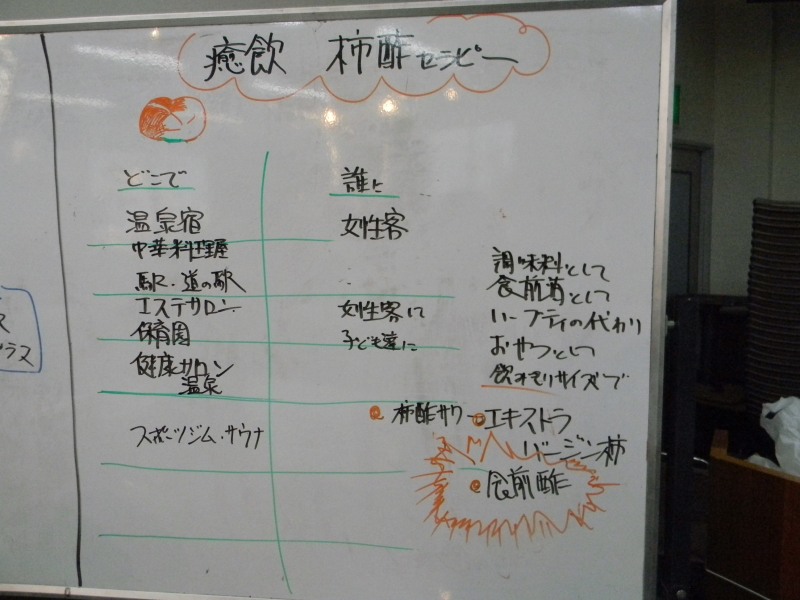 癒飲 柿酢セラピー
どこで
誰に
温泉宿
女性客
中華料理屋
駅・道の駅
エステサロン
女性客に
保育園
子ども達に
健康サロン
温泉
スポーツジム・サウナ
調味料として
食前酢として
ハーブティの代わり
おやつとして
飲みきりサイズで
柿酢サワー
エキストラ
バージン柿
食前酢
ス
プラス